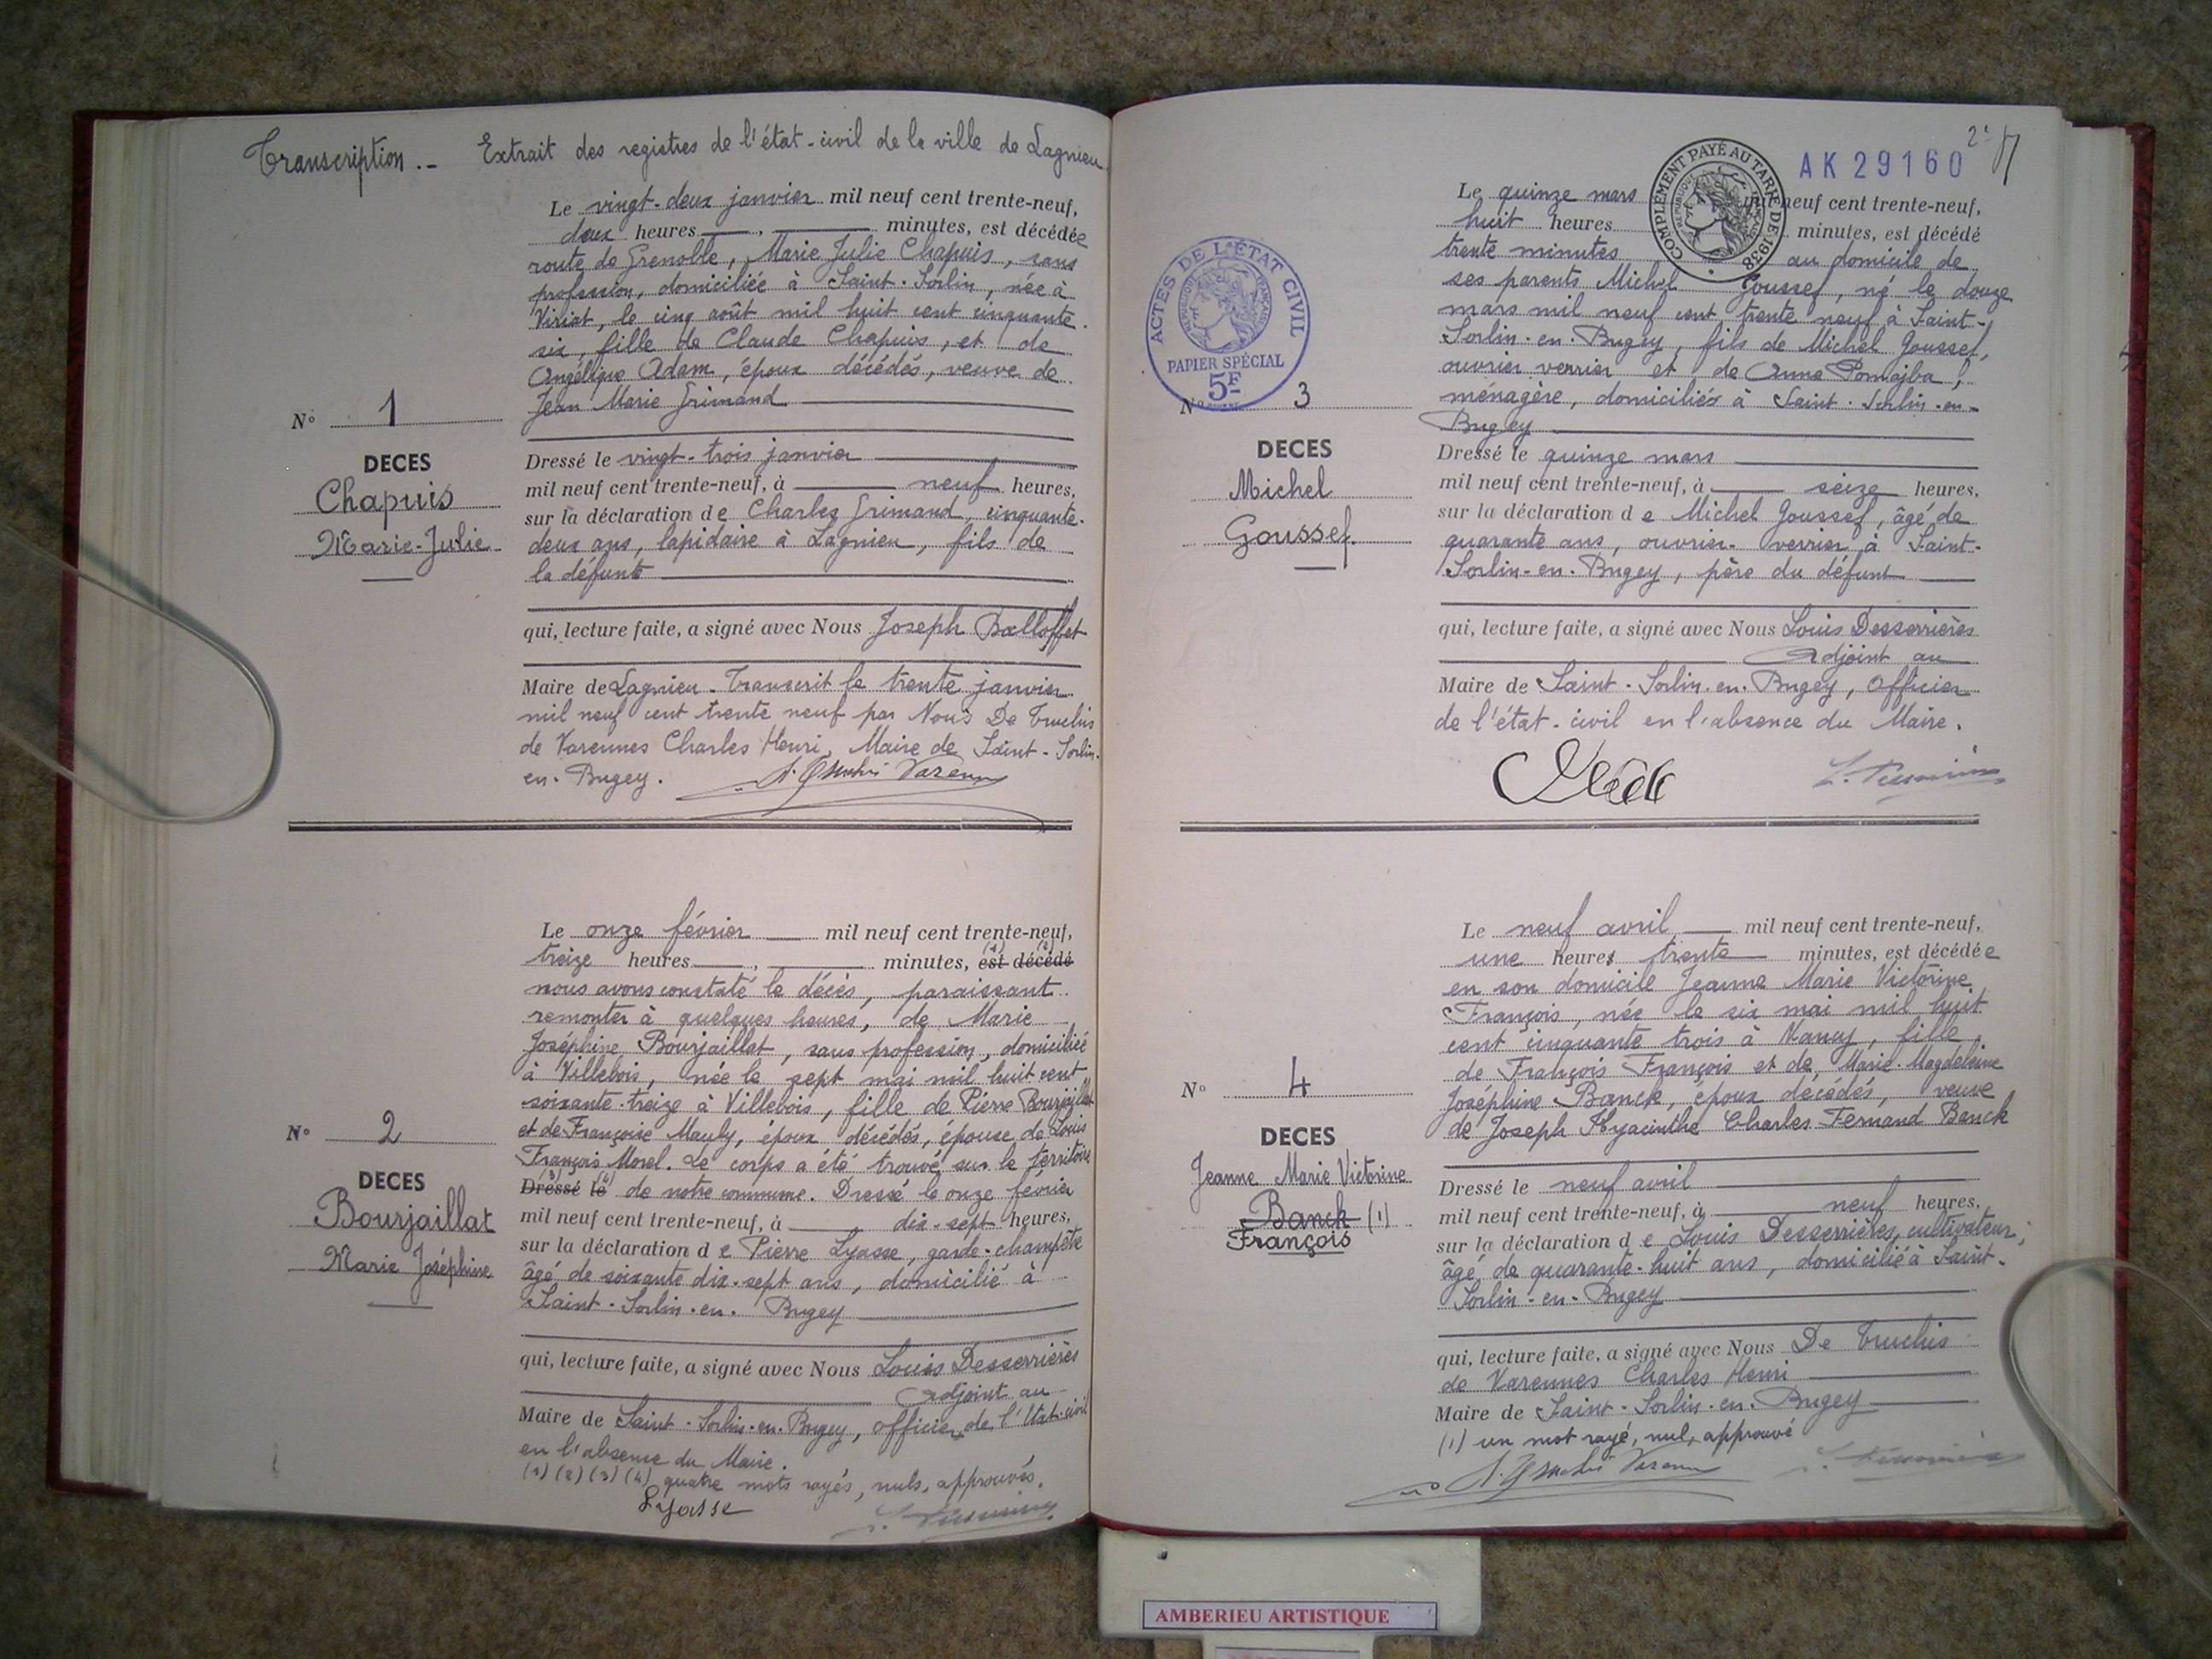 Transcription.- Extrait des registres de l'état-civil de la ville de Lagnieu
Le vingt-deux janvier mil neuf cent trente-neuf,
deux heures , minutes, est décédée
route de Grenoble, Marie Julie Chapuis, sans
profession, domiciliée à Saint-Sorlin, née à
Viriat, le cinq août mil huit cent cinquante
six, fille de Claude Chapuis, et de
Angélique Adam, époux décédés, veuve de
Jean Marie Grimand
N° 1
DECES
Chapuis
Marie-Julie
Dressé le vingt-trois janvier
mil neuf cent trente-neuf, à neuf heures,
sur la déclaration de Charles Grimand, cinquante-
deux ans, lapidaire à Lagnieu, fils de
la défunte
qui, lecture faite, a signé avec Nous Joseph Balloffet
Maire de Lagnieu. Transcrit le trente janvier
mil neuf cent trente neuf par Nous De Truchis
de Varennes Charles Henri, Maire de Saint-Sorlin-
en-Bugey.
Le onze février mil neuf cent trente-neuf,
treize heures , minutes, (1) est (2) décédé
nous avons constaté le décès, paraissant
remonter à quelques heures, de Marie
Joséphine Bourjaillat, sans profession, domiciliée
à Villebois, née le sept mai mil huit cent
soixante-treize à Villebois, fille de Pierre Bourjaillat
et de Françoise Mauly, époux décédés, épouse de Louis
François Morel. Le corps a été trouvé sur le territoire
(3) Dressé (4) le de notre commune. Dressé le onze février
N° 2
DECES
Bourjaillat
Marie Joséphine
mil neuf cent trente-neuf, à dix-sept heures,
sur la déclaration de Pierre Lyasse, garde-champêtre
âgé de soixante dix-sept ans, domicilié à
Saint-Sorlin-en-Bugey
qui, lecture faite, a signé avec Nous Louis Desserrières
Adjoint au
Maire de Saint-Sorlin-en-Bugey, officier de l'Etat-civil
en l'absence du Maire.
(1) (2) (3) (4) quatre mots rayés, nuls, approuvés.
Lyasse
2e
AK 29160
COMPLEMENT PAYÉ AU TARIF DE 1938
REPUBLIQUE FRANÇAISE
ACTES DE L'ÉTAT CIVIL
REPUBLIQUE FRANÇAISE
PAPIER SPÉCIAL
5F
Le quinze mars mil neuf cent trente-neuf,
huit heures minutes, est décédé
trente minutes au domicile de
ses parents Michel Goussef, né le douze
mars mil neuf cent trente neuf à Saint-
Sorlin-en-Bugey, fils de Michel Goussef,
ouvrier verrier et de Anna Pomajba,
ménagère, domiciliés à Saint-Sorlin-en-
Bugey
N° 3
DECES
Michel
Goussef
Dressé le quinze mars
mil neuf cent trente-neuf, à seize heures,
sur la déclaration de Michel Goussef, âgé de
quarante ans, ouvrier-verrier à Saint-
Sorlin-en-Bugey, père du défunt
qui, lecture faite, a signé avec Nous Louis Desserrières
Adjoint au
Maire de Saint-Sorlin-en-Bugey, Officier
de l'état-civil en l'absence du Maire.
Le neuf avril mil neuf cent trente-neuf,
une heures trente minutes, est décédée
en son domicile Jeanne Marie Victorine
François, née le six mai mil huit
cent cinquante trois à Nancy, fille
de François François et de Marie-Magdeleine
Joséphine Banck, époux décédés, veuve
de Joseph Hyacinthe Charles Fernand Banck
N° 4
DECES
Jeanne Marie Victorine
Banck (1)
François
Dressé le neuf avril
mil neuf cent trente-neuf, à neuf heures,
sur la déclaration de Louis Desserrières, cultivateur,
âgé de quarante-huit ans, domicilié à Saint-
Sorlin-en-Bugey
qui, lecture faite, a signé avec Nous De Truchis
de Varennes Charles Henri
Maire de Saint-Sorlin-en-Bugey
(1) un mot rayé, nul, approuvé
AMBERIEU ARTISTIQUE